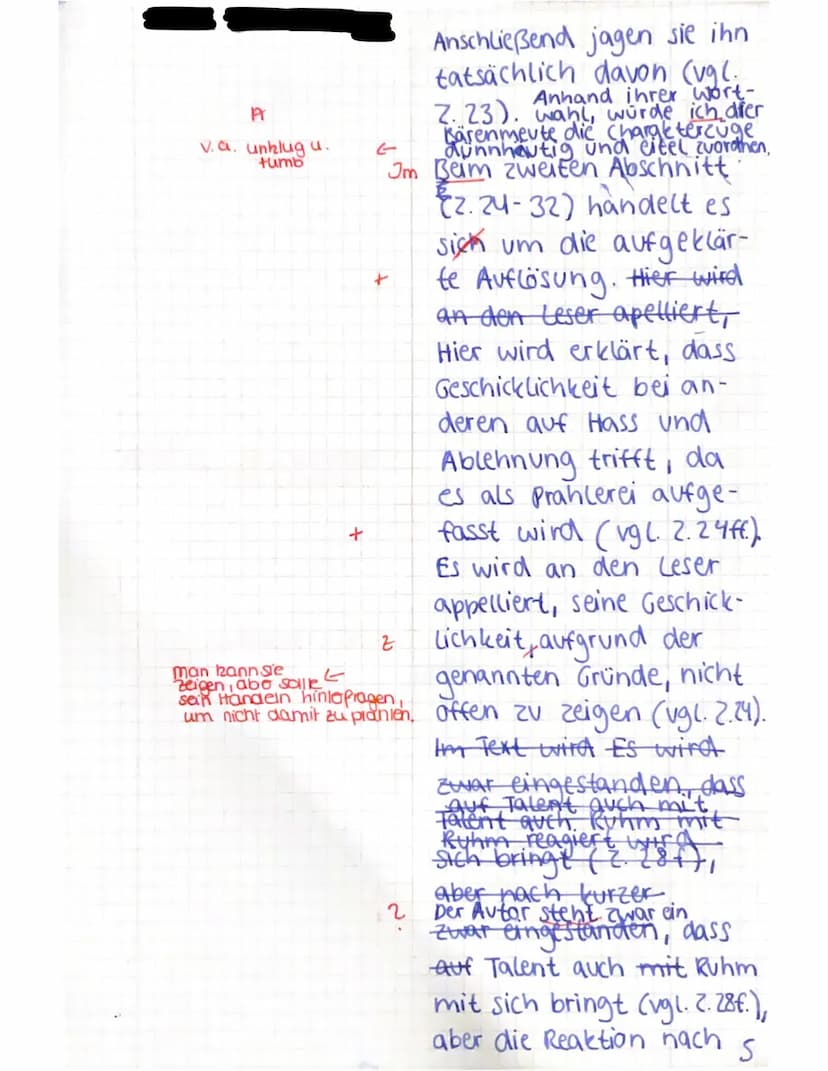 Anschließend jagen sie ihn
tatsächlich davon (vgl.
Anhand ihrer Wort-
Z. 23). wahl, würde ich der
Bärenmeute die Charakterzüge
dünnhäutig und eitel zuordnen.
A
v.a. unklug u. ←
tumb
Im Beim zweiten Abschnitt
(Z. 24-32) handelt es
sich um die aufgeklär-
+ te Auflösung. Hier wird
an den Leser apelliert,
Hier wird erklärt, dass
Geschicklichkeit bei an-
deren auf Hass und
Ablehnung trifft, da
es als Prahlerei aufge-
+ fasst wird (vgl. Z. 24ff.).
Es wird an den Leser
appelliert, seine Geschick-
Z lichkeit, aufgrund der
man kann sie ←
zeigen, abo solle
sein Handeln hinterfragen,
um nicht damit zu prahlen.
genannten Gründe, nicht
offen zu zeigen (vgl. Z. 24).
Im Text wird Es wird
zwar eingestanden, dass
auf Talent auch mit
Talent auch Ruhm mit
Ruhm reagiert wird
sich bringt (Z. 28f),
aber nach kurzer
? Der Autor steht zwar ein,
zwar eingestanden, dass
auf Talent auch mit Ruhm
mit sich bringt (vgl. Z. 28f.),
aber die Reaktion nach
5